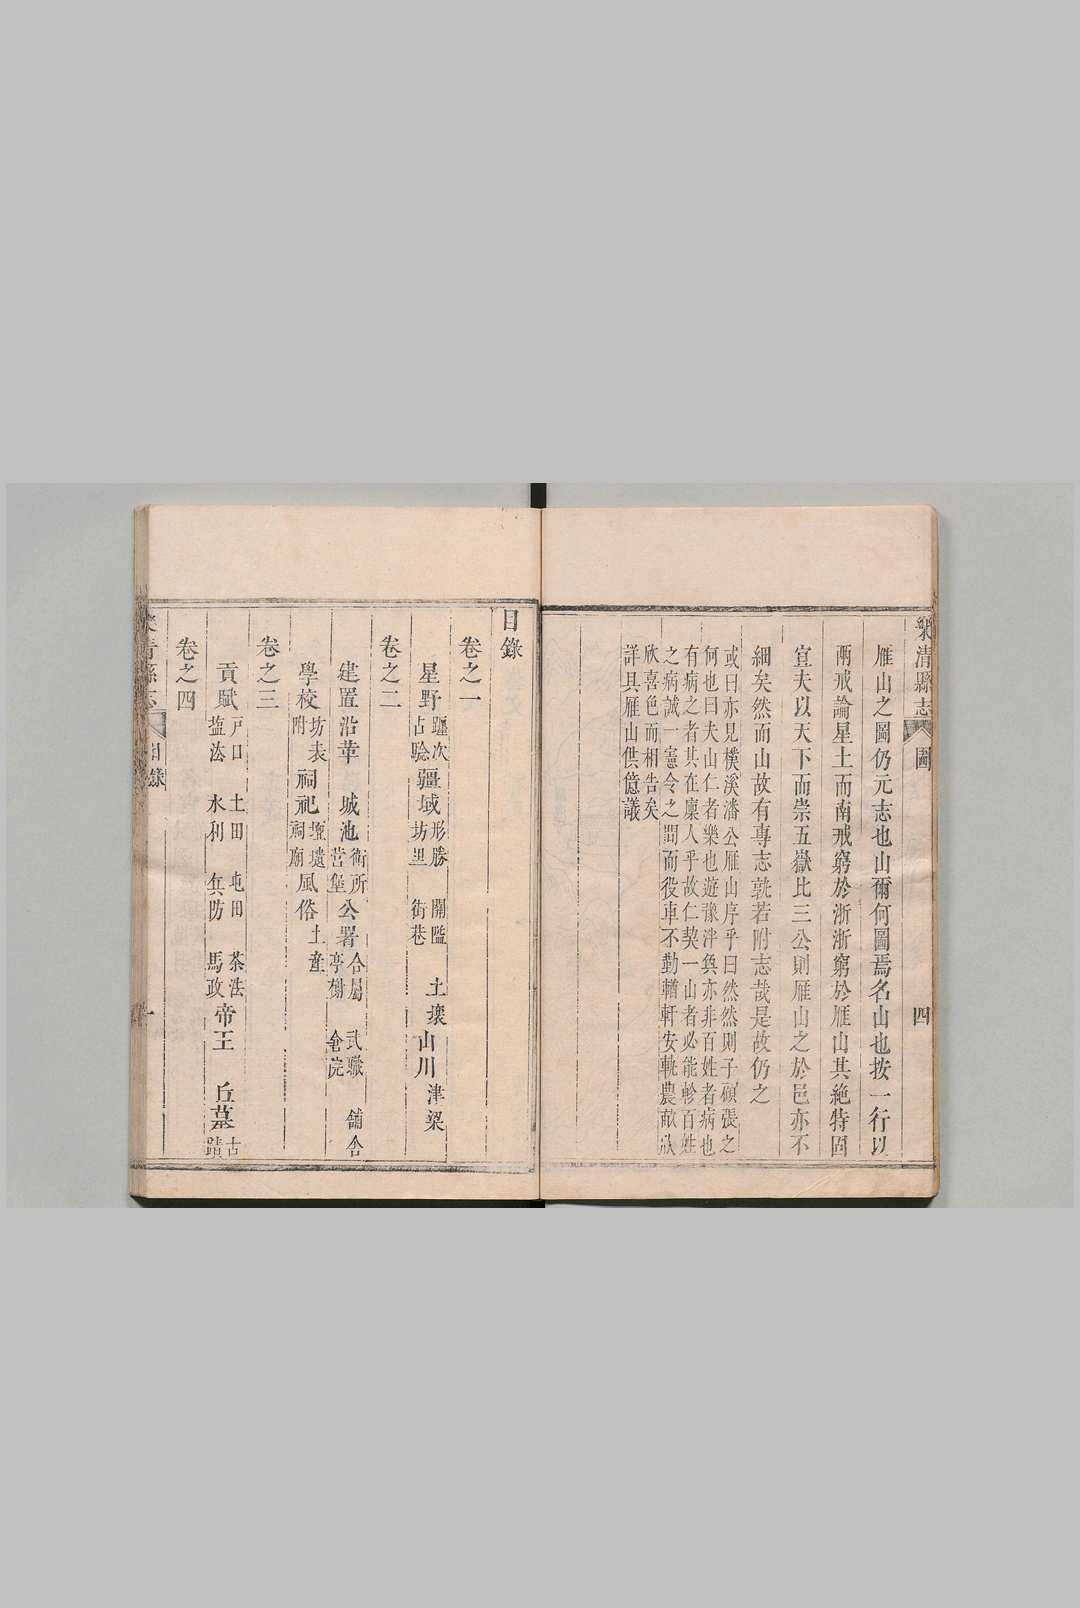 樂清縣志 圖 四
雁山之圖仍元志也山爾何圖焉名山也按一行以
兩戒論星土而南戒窮於浙浙窮於雁山其絶特固
宜夫以天下而崇五嶽比三公則雁山之於邑亦不
細矣然而山故有專志孰若附志哉是故仍之
或曰亦見樸溪潘公雁山序乎曰然然則子碩張之
何也曰夫山仁者樂也遊豫泮奐亦非百姓者病也
有病之者其在廪人乎故仁契一山者必能軫百姓
之病誠一憲令之間而役車不勤輶軒安軌農畝欣
欣喜色而相告矣
詳具雁山供億議
目錄
卷之一
星野 躔次 占驗 疆域 形勝 坊里 關隘 街巷 土壤 山川 津梁
卷之二
建置 沿革 城池 衛所 營堡 公署 合屬 亭榭 武職 倉院 舖舍
學校 坊表 附 祠祀 壇壝 祠廟 風俗 土產
卷之三
貢賦 戸口 盐法 土田 水利 屯田 兵防 茶法 馬政 帝王 丘墓 古蹟
卷之四
樂清縣志 目錄 一